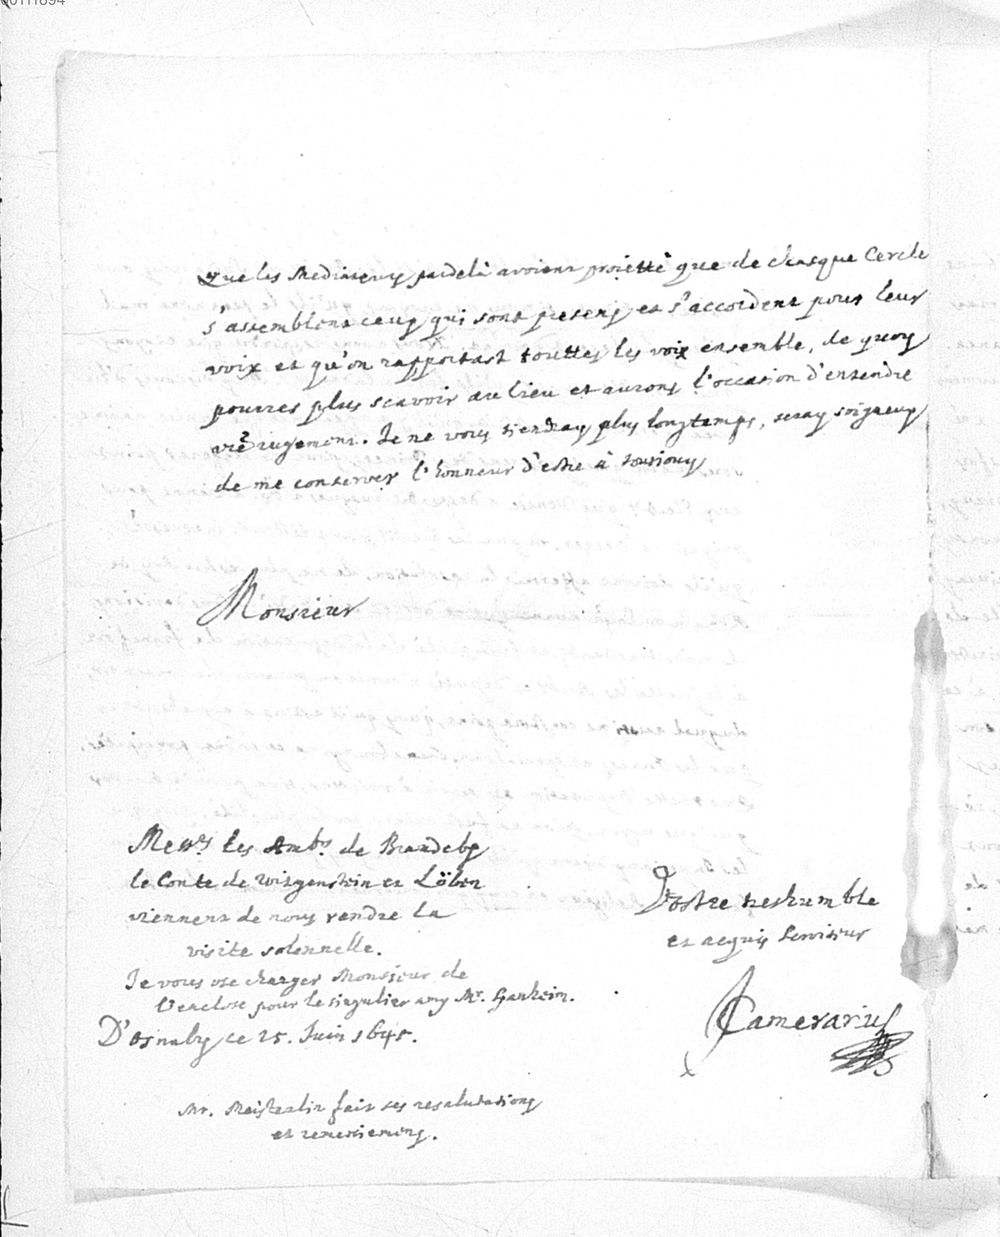 que les Mediateurs pardelà avoient proietté que de chasque Cercle
s'assemblent ceux qui sont presens et s'accordent pour leur
voix et qu'on rapportast touttes les voix ensemble, de quoy
pourres plus scavoir au lieu et aurons l'occasion d'entendre
vre jugement. Je ne vous tiendray plus longtemps, seray soigneux
de me conserver l'honneur d'estre à tousiours
Monsieur
Mess.rs les Amb.rs de Brandebg
le Conte de Witgenstein et Löben
viennent de nous rendre la
visite solennelle.
Je vous ose charger Monsieur de
l'enclose pour le singulier amy Mr.
D'Osnabg ce 25. Juin 1645.
Vostre treshumble
et acquis Serviteur
Camerarius
Mr. fait ses resalutations
et remerciemens.